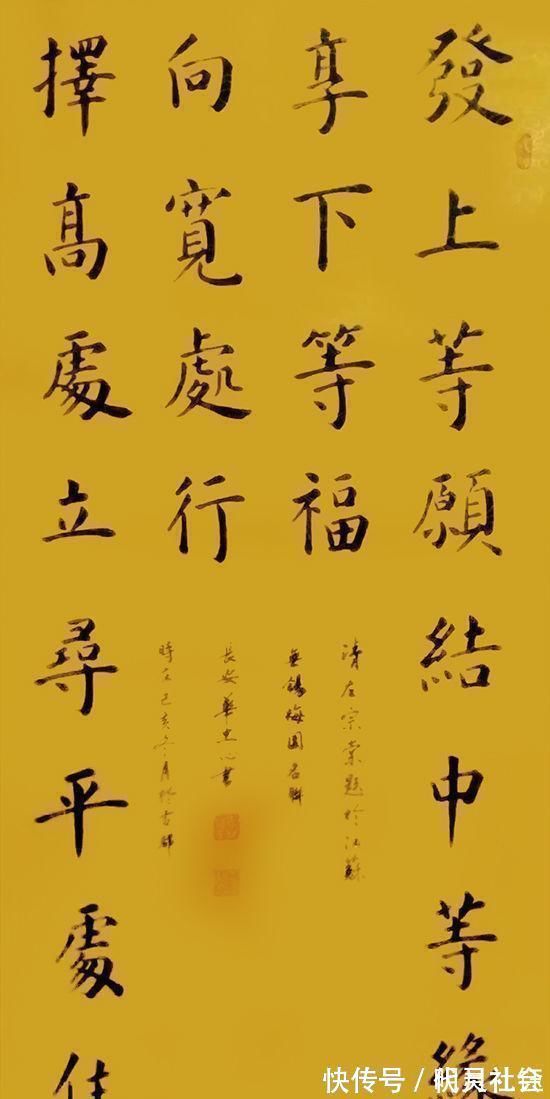 發上等願結中等緣
享下等福
擇高處立尋平處住
向寬處行
清左宗棠題於江蘇
無錫梅園名聯
長安華忠心書
時在己亥冬月於古都
快传号 / 社会